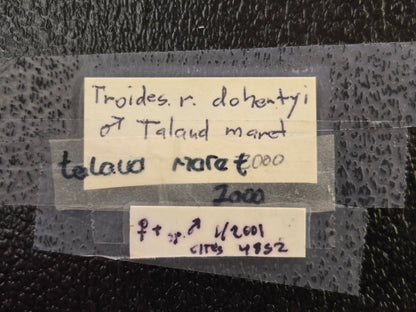 Troides. r. dohertyi
♂ Talaud maret
2000
telaud maret
2000
♀ + sp. ♂ 1/2001
CITES 4852